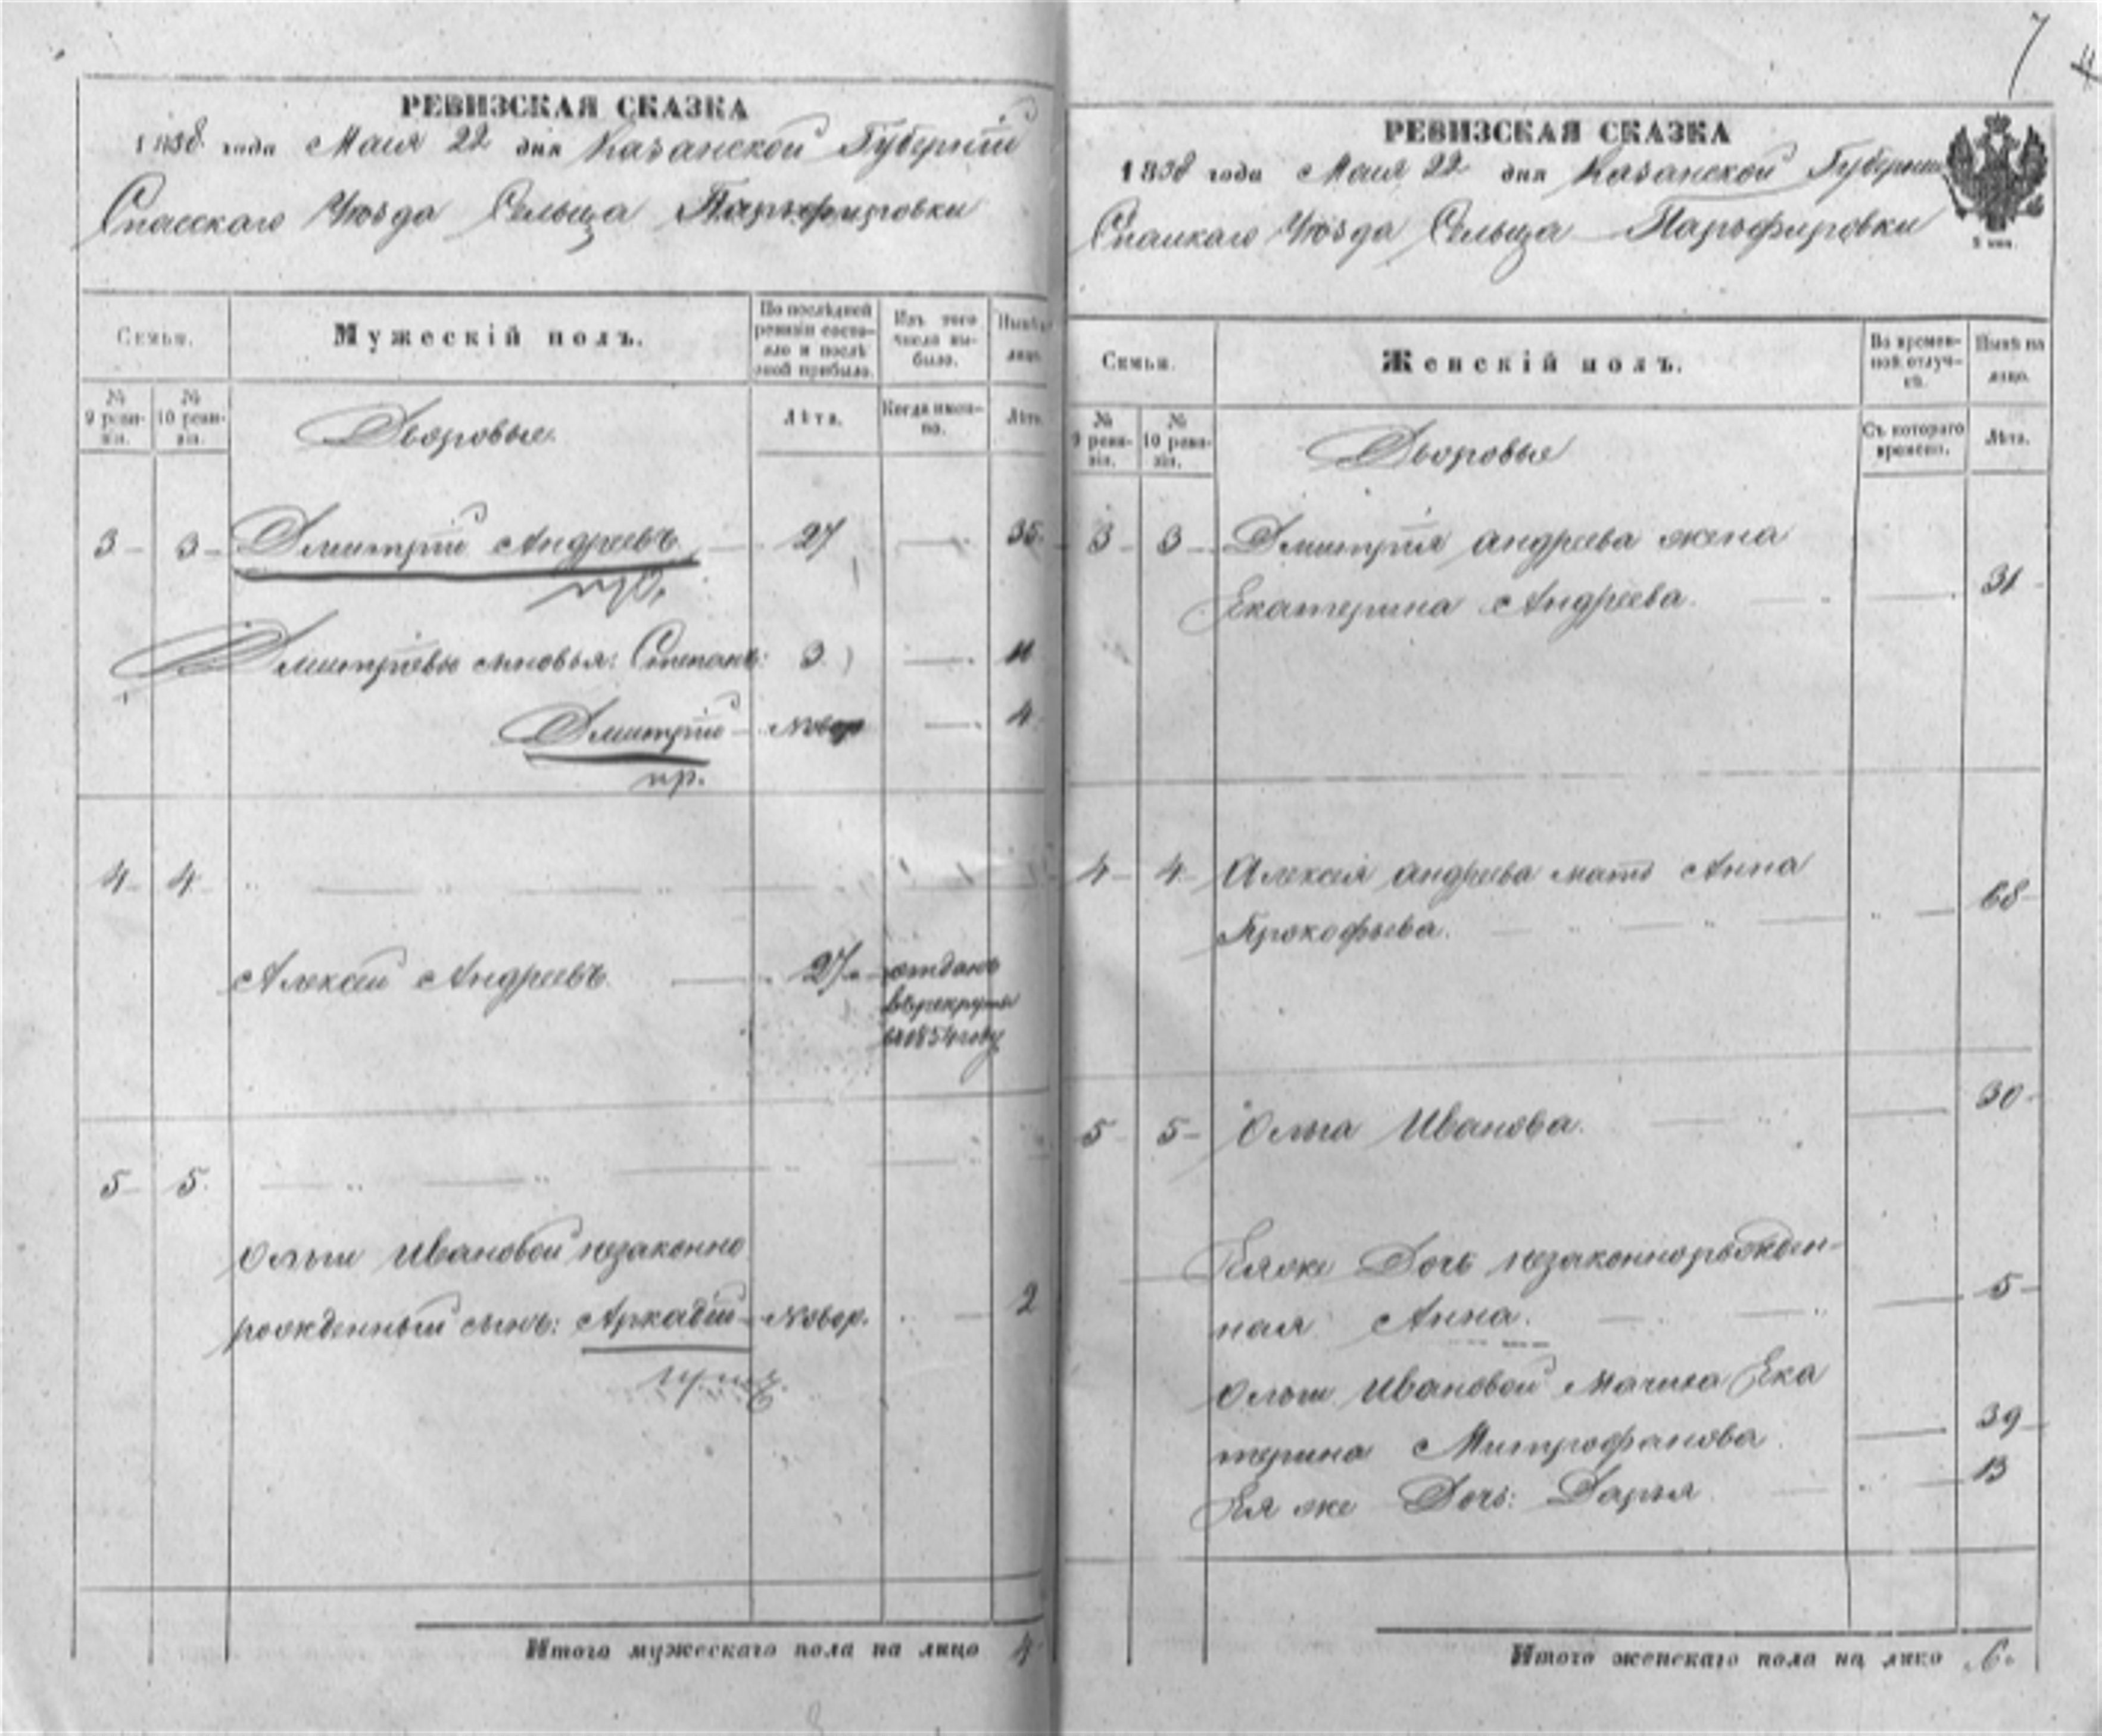 7
РЕВИЗСКАЯ СКАЗКА
1858 года Маия 22 дня Казанской Губернии
Спасскаго Уѣзда Сельца Парѳфировки
Семьи.
Мужескій полъ.
По послѣдней ревизіи состояло и послѣ оной прибыло.
Изъ того числа выбыло.
Нынѣ на лицо.
№ 9 ревизіи.
№ 10 ревизіи.
Дворовые
Лѣта.
Когда именно.
Лѣта.
3 3 Дмитрій Андреевъ 27 35
пр.
Дмитріевы сыновья: Степанъ: 3 11
Дмитрій Новор 4
пр.
4 4
Алексей Андреевъ 27 отданъ
въ рекруты
в 1854 году
5 5
Ольги Ивановой незаконно
рожденный сынъ: Аркадій Новор. 2
Итого мужескаго пола на лицо 4
РЕВИЗСКАЯ СКАЗКА
1858 года Маия 22 дня Казанской Губернии
Спасскаго Уѣзда Сельца Парьфировки
Семьи.
Женскій полъ.
Во временной отлучкѣ.
Нынѣ на лицо.
№ 9 ревизіи.
№ 10 ревизіи.
Дворовые
Съ котораго времени.
Лѣта.
3 3 Дмитрия андреева жена
Екатерина Андреева. 31
4 4 Алексея андреева мать Анна
Прокофьева. 68
5 5 Ольга Иванова. 30
Ея же Дочь незаконнорожден-
ная Анна. 5
Ольги Ивановой Мачиха Ека
терина Митрофанова 39
Ея же Дочь: Дарья 13
Итого женскаго пола на лицо 6